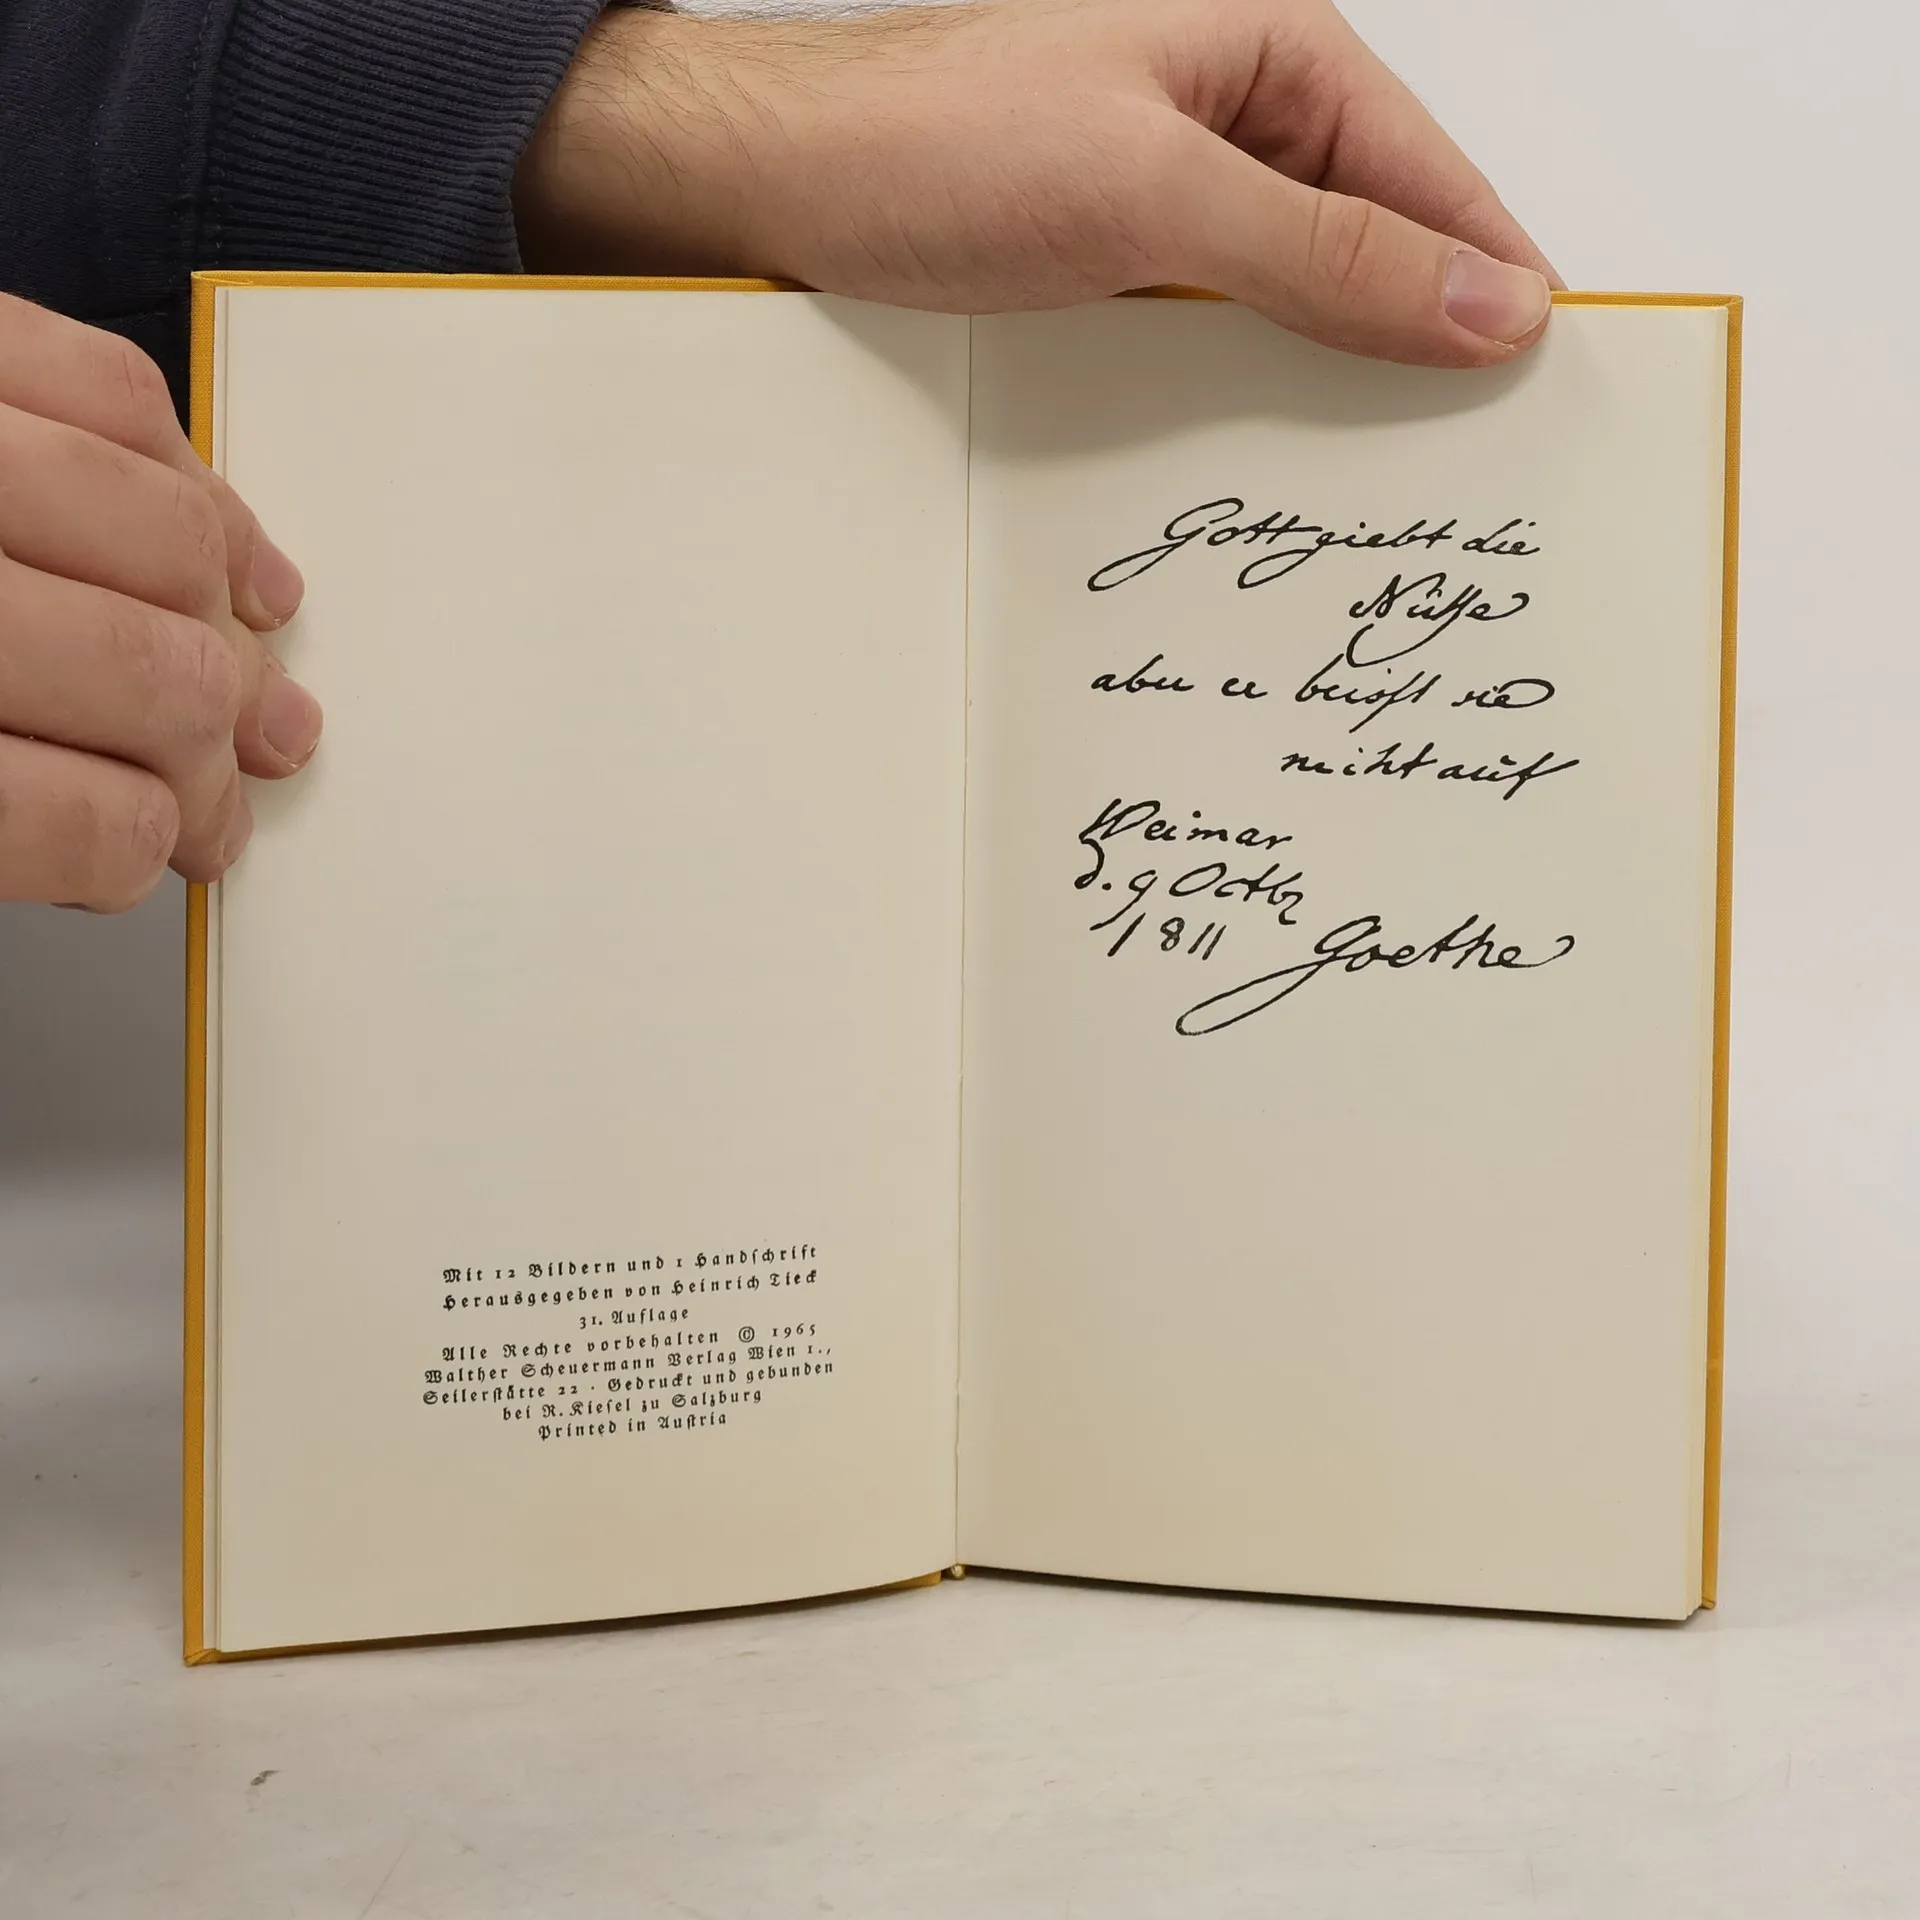 Mit 12 Bildern und 1 Handschrift
Herausgegeben von Heinrich Tieck
31. Auflage
Alle Rechte vorbehalten © 1965
Walther Scheuermann Verlag Wien 1.,
Seilerstätte 22 · Gedruckt und gebunden
bei R. Kiesel zu Salzburg
Printed in Austria
Gott giebt die
Nüße
aber er beißt sie
nicht auf
Weimar
d. 9 Octbr
1811 Goethe